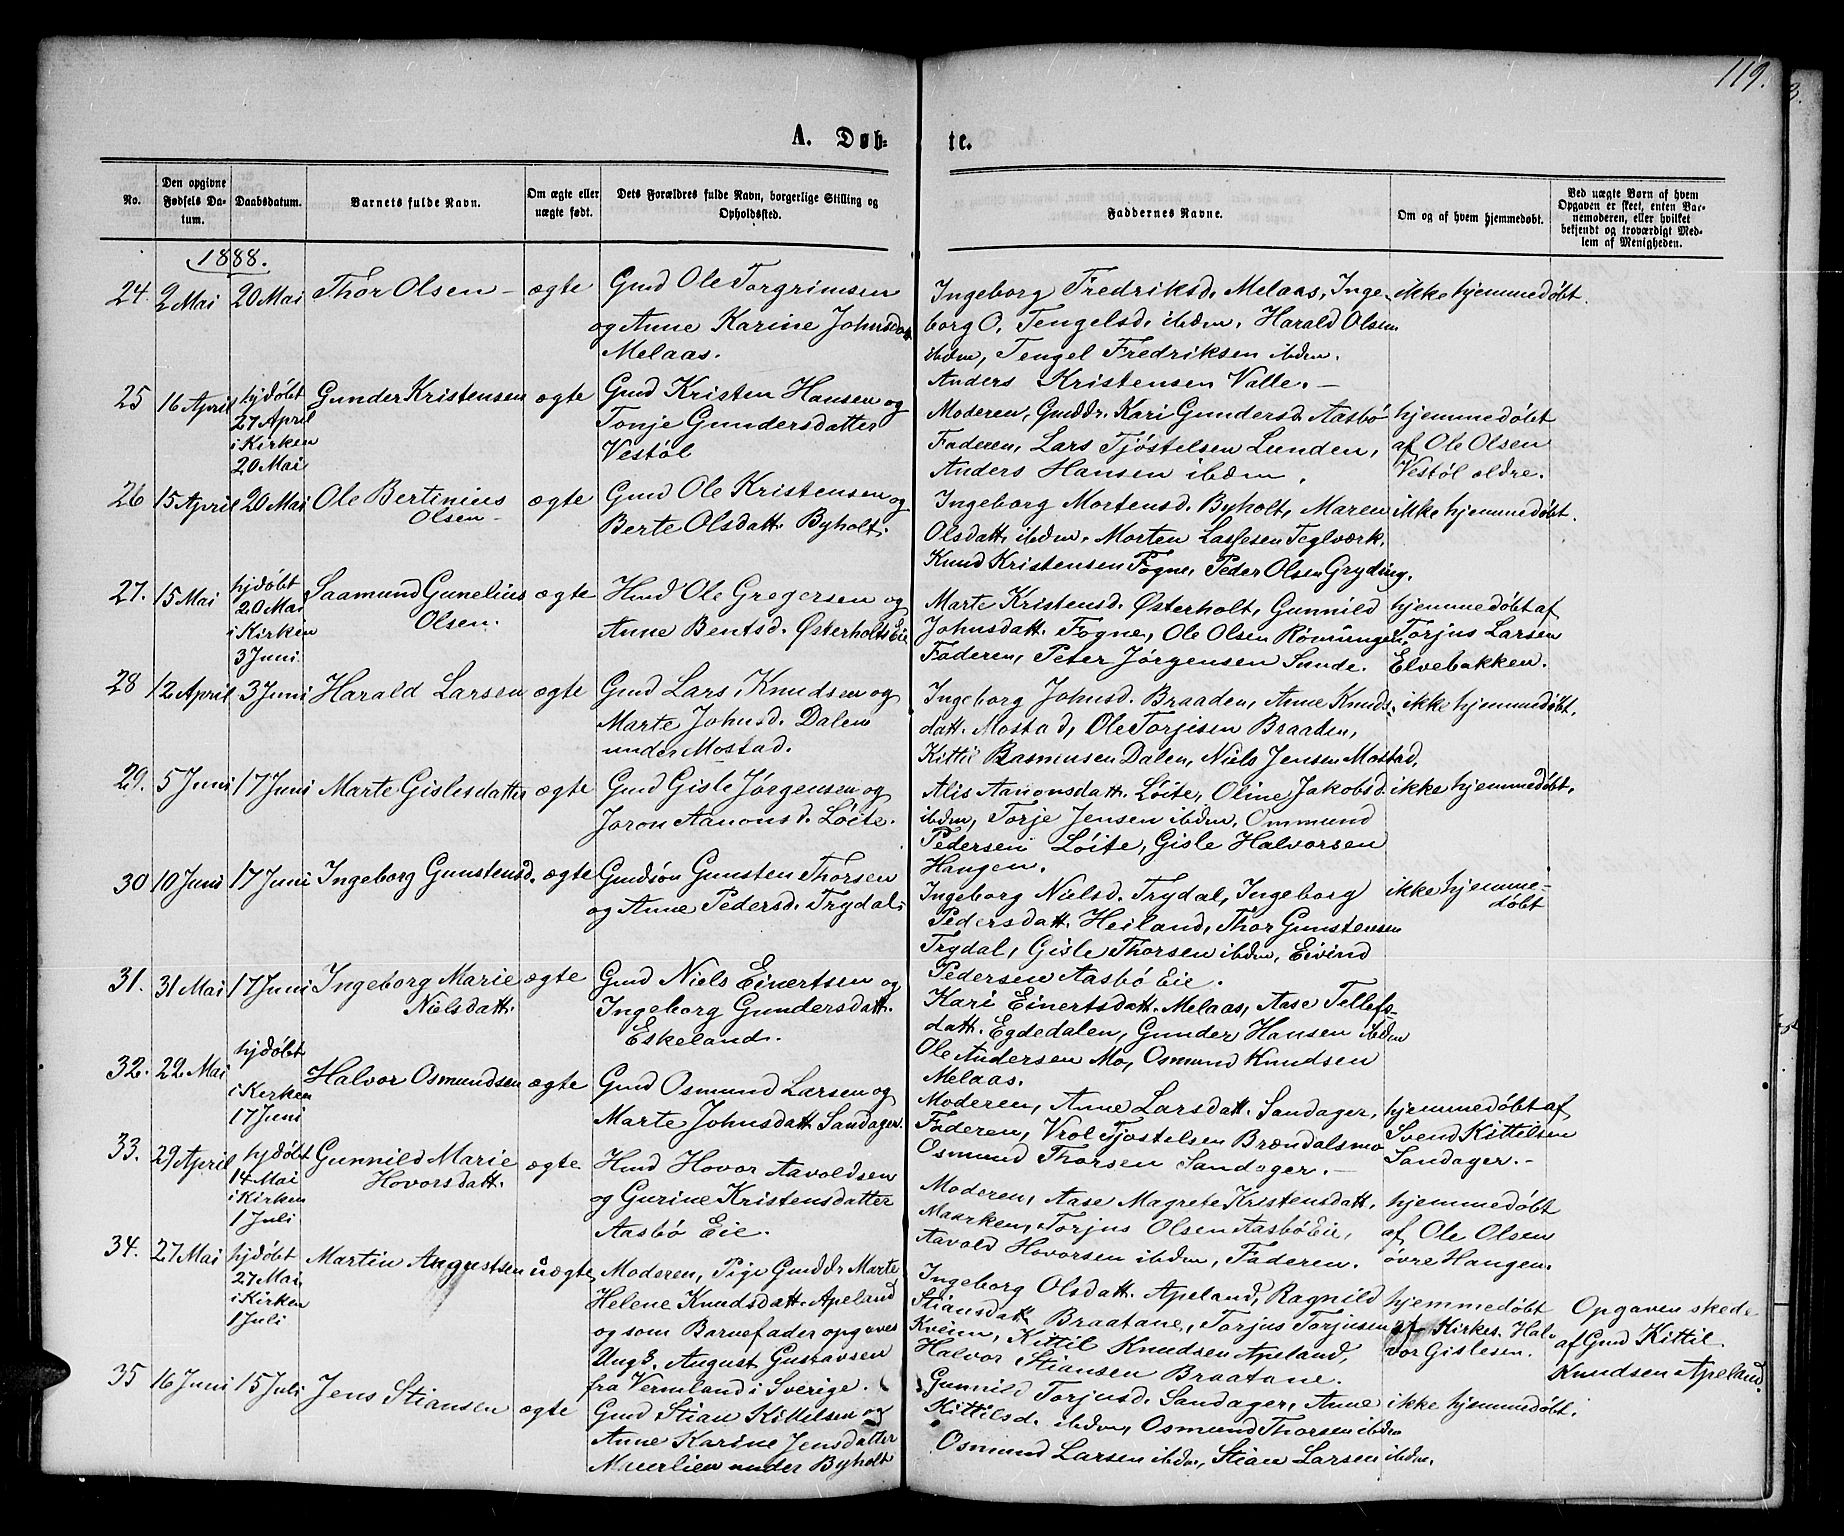 119.
A. Døb- te.
No.
Den opgivne Fødsels Datum.
Daabsdatum.
Barnets fulde Navn.
Om ægte eller uægte født.
Dets Forældres fulde Navn, borgerlige Stilling og Opholdssted.
Faddernes Navne.
Om og af hvem hjemmedøbt.
Ved uægte Børn af hvem Opgaven er skeet, enten Barnemoderen, eller hvilket bekjendt og troværdigt Medlem af Menigheden.
1888.
24. 2 Mai 20 Mai Thor Olsen – ægte
Gmd Ole Torgrimsen
og Anne Karine Johnsdatt.
Melaas.
Ingeborg Fredriksd. Melaas, Inge-
borg O. Tengelsd. ibdm, Harald Olsen
ibdm, Tengel Fredriksen ibdm.
Anders Kristensen Valle. –
ikke hjemmedøbt.
25 16 April
hjdøbt
27 April
i Kirken
20 Mai
Gunder Kristensen ægte
Gmd Kristen Hansen og
Tonje Gundersdatter
Vestøl
Moderen, Gmddr. Kari Gundersd. Aasbø
Faderen, Lars Tjøstelsen Lunden,
Anders Hansen ibdm.
hjemmedøbt
af Ole Olsen
Vestøl ældre.
26 15 April 20 Mai Ole Bertinius
Olsen –
ægte
Gmd Ole Kristensen og
Berte Olsdatt. Byholt.
Ingeborg Mortensd. Byholt, Maren
Olsdatt. ibdm. Morten Lassesen Teglværk.
Knud Kristensen Fogne, Peder Olsen Gryding.
ikke hjemmedøbt.
27. 15 Mai
hjdøbt
20 Mai
i Kirken
3 Juni
Saamund Gunelius
Olsen.
ægte
Hmd Ole Gregersen og
Anne Bentsd. Østerholts Eie
Marte Kristensd. Østerholt, Gunnild
Johnsdatt. Fogne, Ole Olsen Rømingen
Faderen, Peter Jørgensen Sunde.
hjemmedøbt af
Torjus Larsen
Elvebakken.
28 12 April 3 Juni Harald Larsen ægte
Gmd Lars Knudsen og
Marte Johnsd. Dalen
under Mostad.
Ingeborg Johnsd. Braaden, Anne Knuds-
datt. Mostad, Ole Torjisen Braaden,
Kittil Rasmusen Dalen, Niels Jensen Mostad.
ikke hjemmedøbt.
29. 5 Juni 17 Juni Marte Gislesdatter ægte
Gmd Gisle Jørgensen og
Joron Aanonsd. Løite.
Alis Aanonsdatt. Løite, Oline Jakobsd.
ibdm, Torje Jensen ibdm, Ommund
Pedersen Løite, Gisle Halvorsen
Haugen.
ikke hjemmedøbt.
30 10 Juni 17 Juni Ingeborg Gunstensd. ægte
Gmdsøn Gunsten Thorsen
og Anne Pedersd. Trydal.
Ingeborg Nielsd. Trydal, Ingeborg
Pedersdatt. Heiland, Thor Gunstensen
Trydal, Gisle Thorsen ibdm, Eivind
Pedersen Aasbø Eie.
ikke hjemme-
døbt
31. 31 Mai 17 Juni Ingeborg Marie
Nielsdatt.
ægte
Gmd Niels Einertsen og
Ingeborg Gundersdatt.
Eskeland.
Kari Einertsdatt. Melaas, Aase Tellefs-
datt. Egdedalen, Gunder Hansen ibdm
Ole Andersen Mo, Osmund Knudsen
Melaas.
32. 22 Mai
hjdøbt
i Kirken
17 Juni
Halvor Osmundsen ægte
Gmd Osmund Larsen og
Marte Johnsdatt. Sandager.
Moderen, Anne Larsdatt. Sandager,
Faderen, Vrol Tjøstelsen Brændalsmo
Osmund Thorsen Sandager. –
hjemmedøbt af
Svend Kittilsen
Sandager. –
33. 29 April
hjdøbt
14 Mai
i Kirken
1 Juli
Gunnild Marie
Hovorsdatt.
ægte
Hmd Hovor Aavoldsen
og Gurine Kristensdatter
Aasbø Eie.
Moderen, Aase Magrete Kristensdatt.
Maarken, Torjus Olsen Aasbø Eie,
Aavold Hovorsen ibdm, Faderen.
hjemmedøbt
af Ole Olsen
øvre Haugen.
34. 27 Mai
hjdøbt
27 Mai
i Kirken
1 Juli
Martin Augustsen uægte
Moderen, Pige Gmddr Marte
Helene Knudsdatt. Apeland
og som Barnefader opgives
Ungk. August Gustavsen
fra Vermland i Sverige.
Ingeborg Olsdatt. Apeland, Ragnild
Stiansdatt Braatane, Torjus Torjusen
Kveim, Kittil Knudsen Apeland,
Halvor Stiansen Braatane.
hjemmedøbt
af Kirkes. Hal-
vor Gislesen.
Opgaven skede
af Gmd Kittil
Knudsen Apeland.
35 16 Juni 15 Juli Jens Stiansen ægte
Gmd Stian Kittilsen og
Anne Karine Jensdatter
under Byholt
Gunnild Torjusd. Sandager, Anne
Kittilsd. ibdm, Osmund Thorsen ibdm
Osmund Larsen ibdm, Stian Larsen ibdm.
ikke hjemmedøbt.